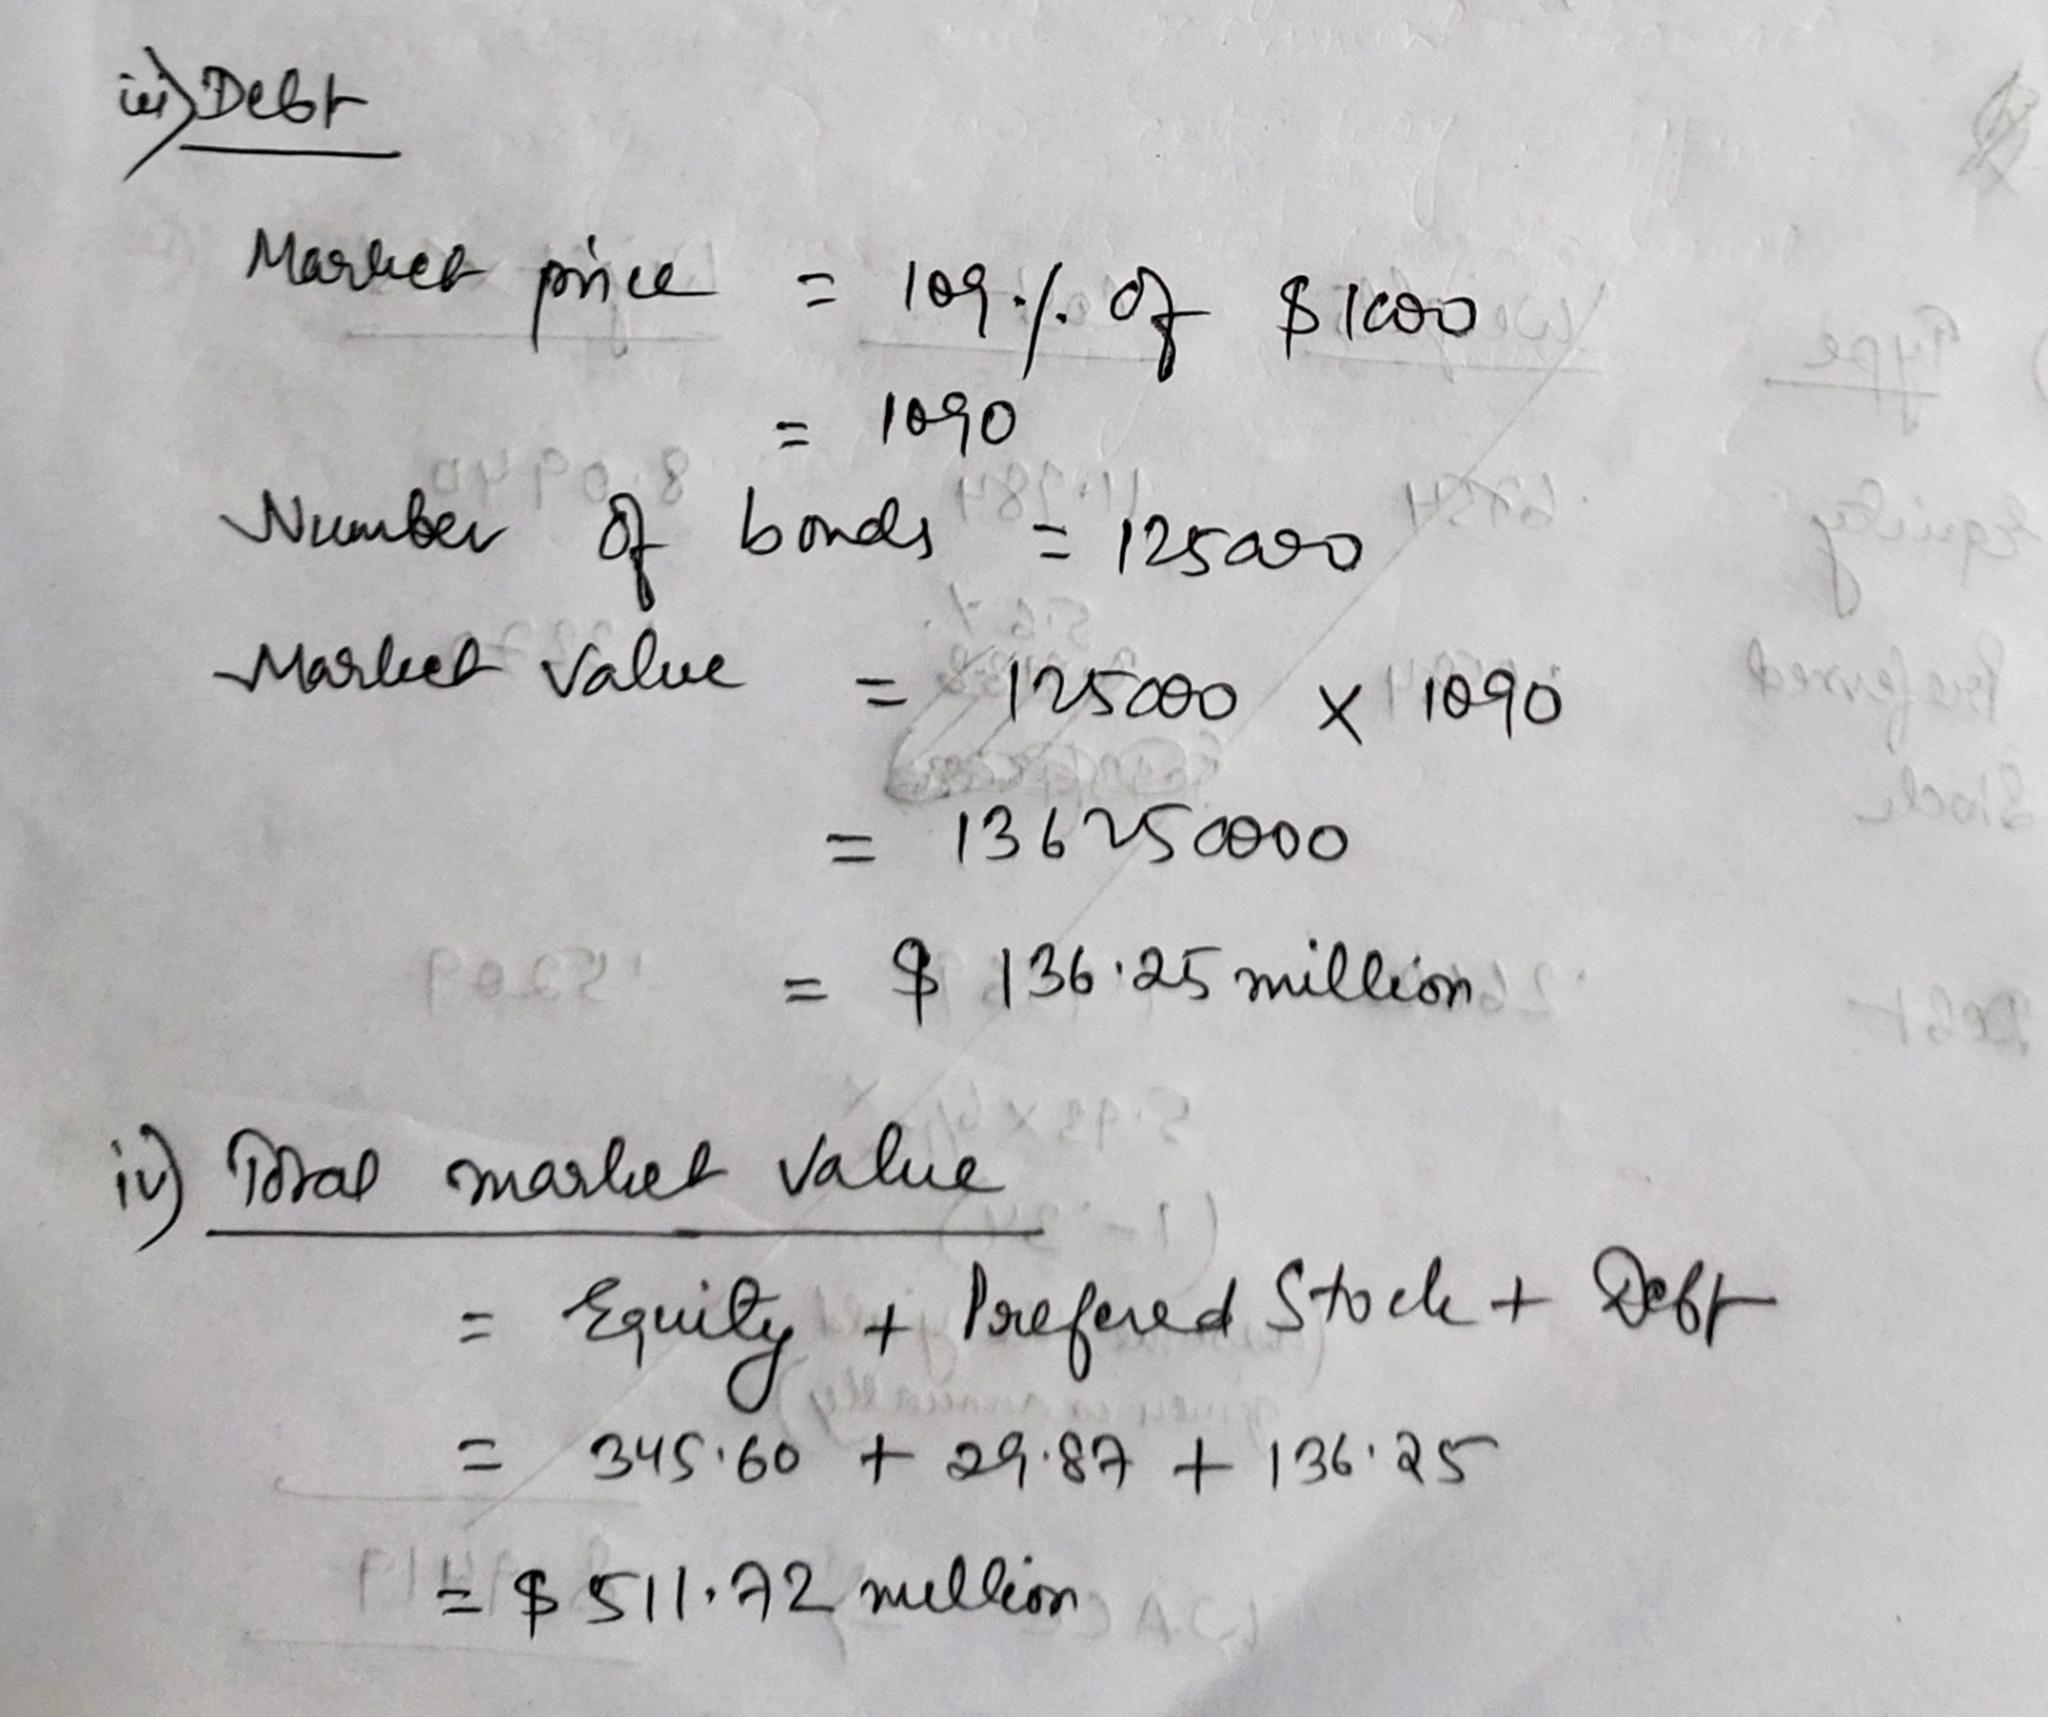 iii) Debt
Market price = 109 % of $1000
= 1090
Number of bonds = 125000
Market value = 125000 x 1090
= 136250000
= $ 136.25 million
iv) Total market value
= Equity + Prefered Stock + Debt
= 345.60 + 29.87 + 136.25
= $ 511.72 million